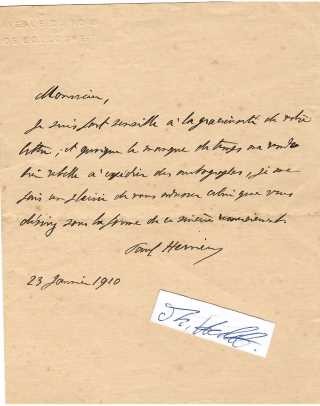 Monsieur,
Je suis fort sensible à la gracieuseté de votre
lettre, et quoique le manque de temps m'a rendu
très rebelle à expédier des autographes, je me
fais un plaisir de vous adresser celui que vous
désirez sous la forme de ce sincère remerciement.
Paul Hervieu
23 Janvier 1910